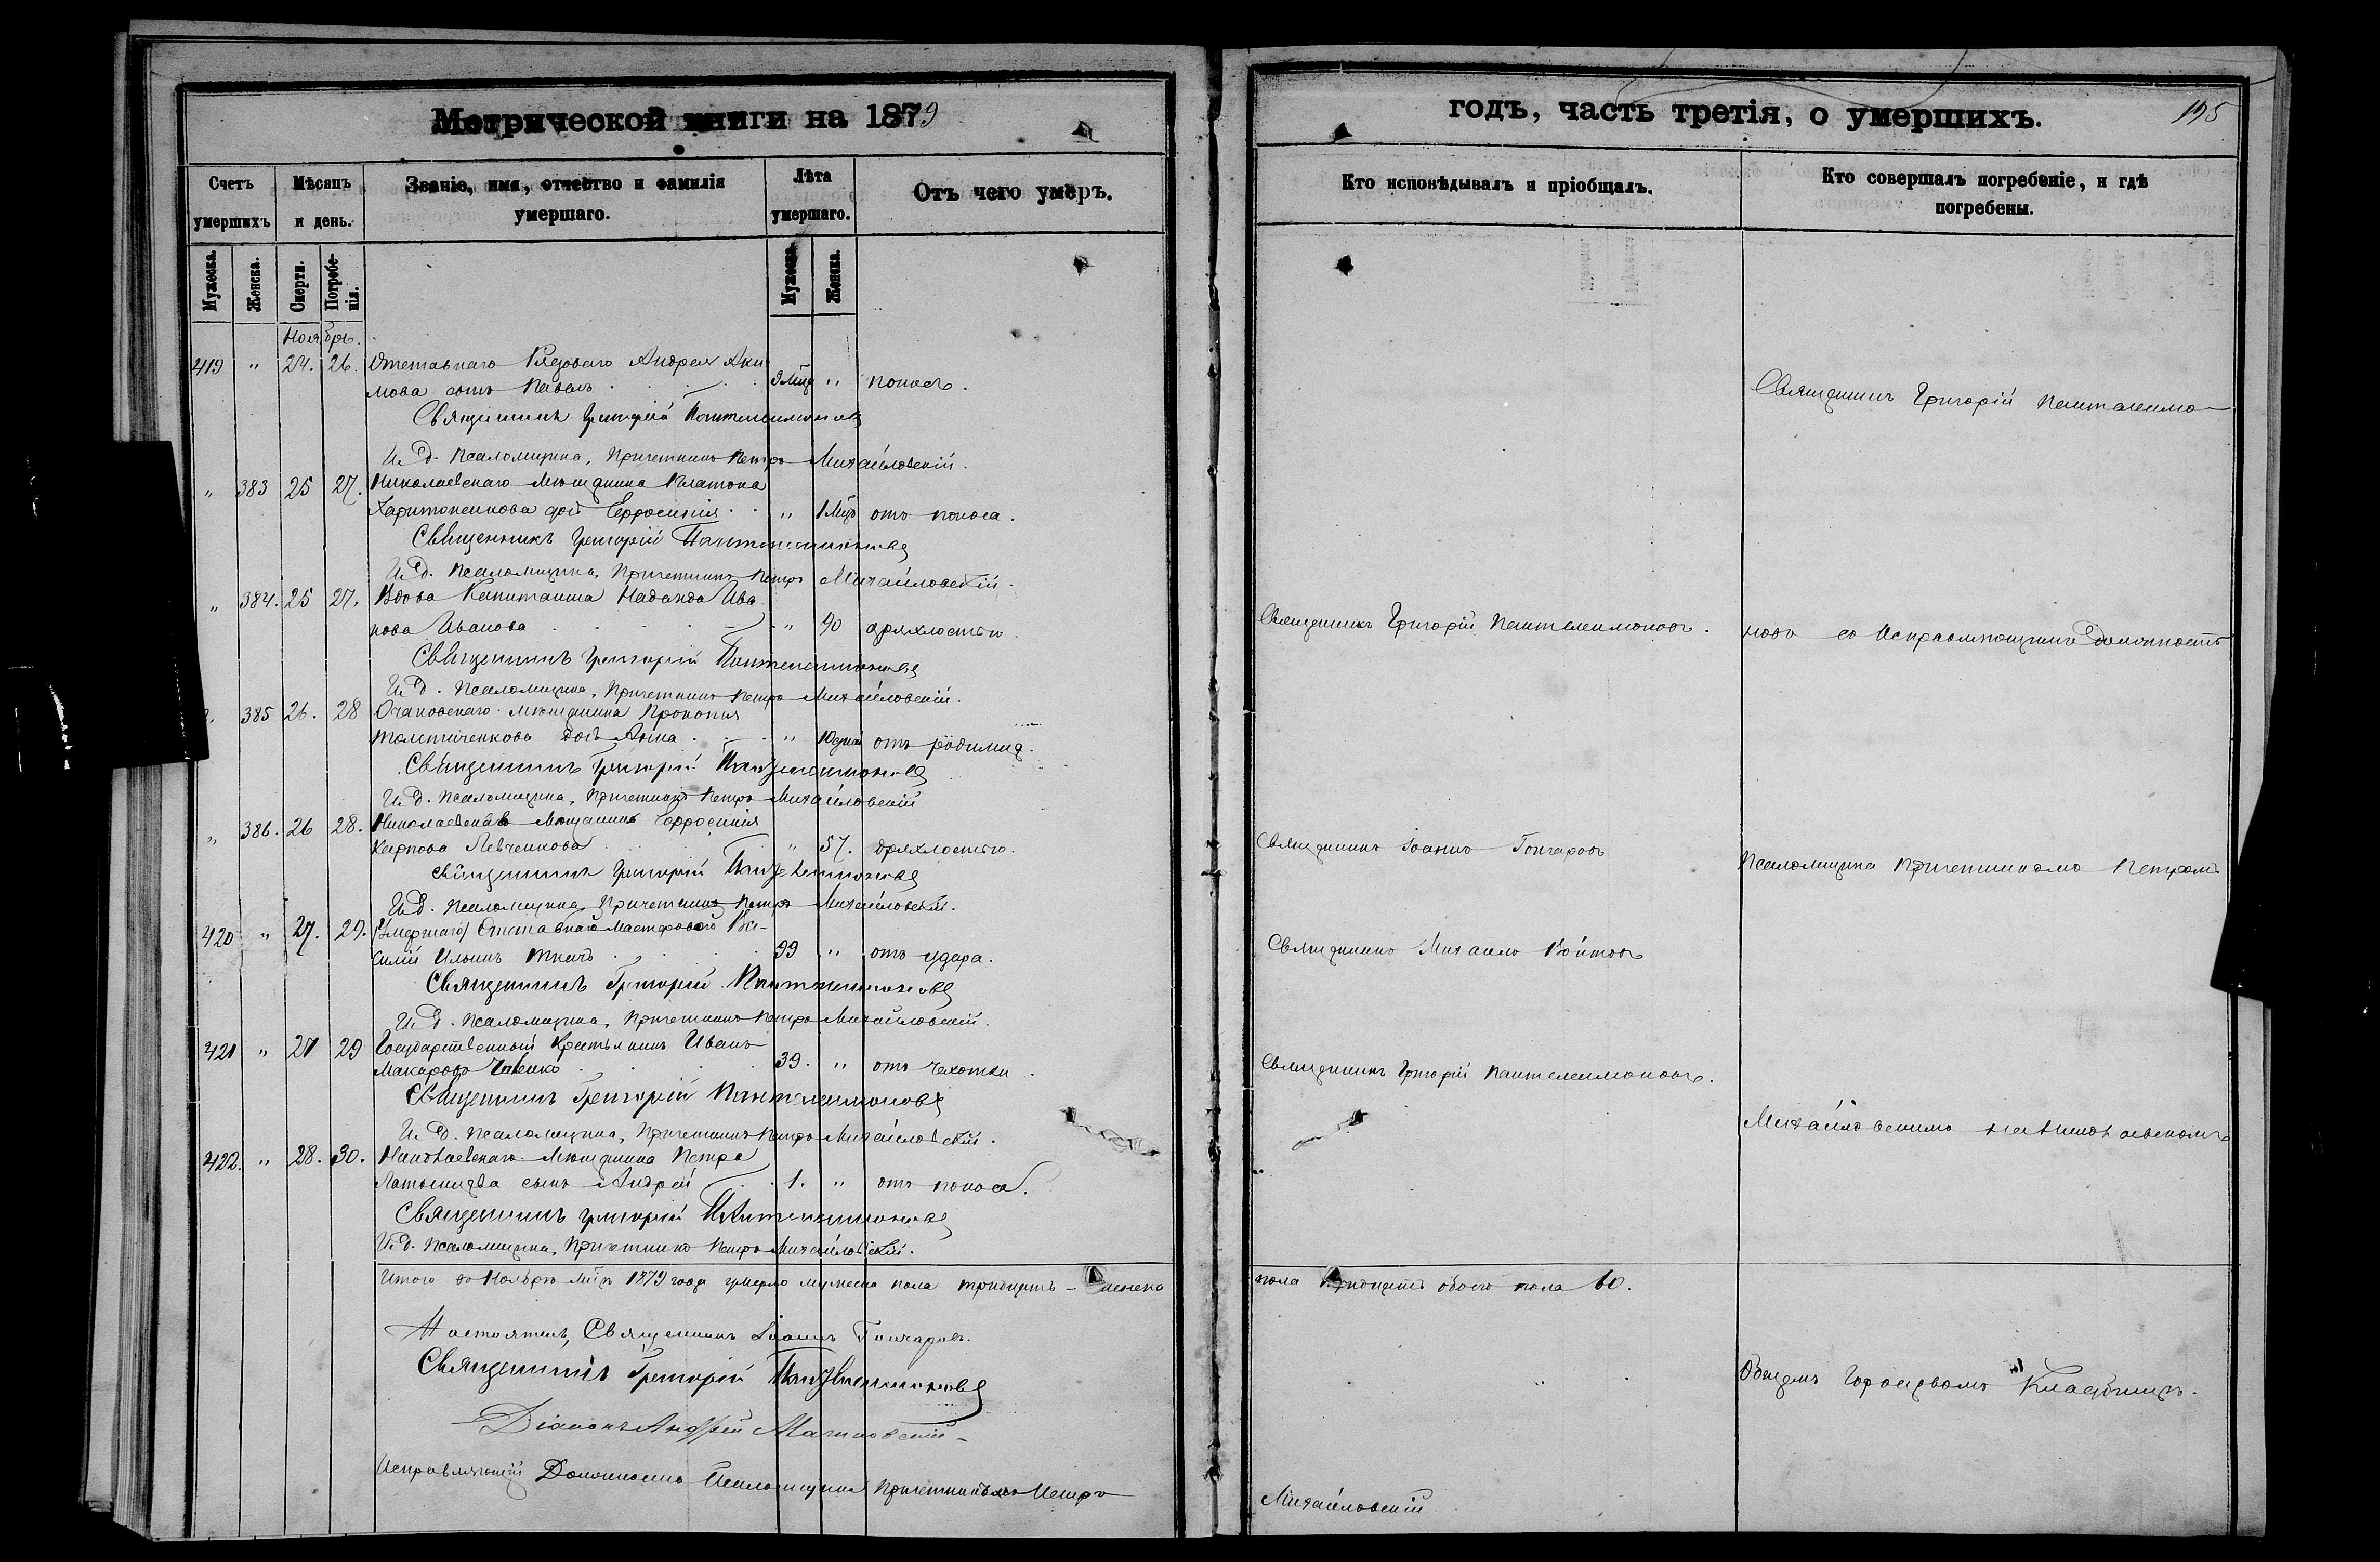 Метрической книги на 1879
годъ, часть третія, о умершихъ.
195
Счетъ умершихъ
Мѣсяцъ и день.
Званіе, имя, отчество и фамилія умершаго.
Лѣта умершаго.
Отъ чего умеръ.
Кто исповѣдывалъ и пріобщалъ.
Кто совершалъ погребеніе, и гдѣ погребены.
Мужеска.
Женска.
Смерти.
Погребе-
нія.
Мужеска.
Женска.
Ноябрь.
419 " 24. 26. Отставнаго Рядоваго Андрея Аки
мова сынъ Павелъ 9 Мцъ " поносъ.
Священникъ Григорій Пантелеимоновъ
И. д. Псаломщика, Причетникъ Петръ Михайловскій.
" 383 25 27. Николаевскаго Мѣщанина Платона
Харитоненкова дочь Ефросинія " 1 Мцъ отъ поноса.
Священникъ Григорій Пантелеимоновъ
И. д. Псаломщика, Причетникъ Петръ Михайловскій.
" 384. 25 27. Вдова Капитанша Надежда Ива
нова Иванова " 40 дряхлостью.
Священникъ Григорій Пантелеимоновъ
И. д. Псаломщика, Причетникъ Петръ Михайловскій.
385 26. 28 Очаковскаго Мѣщанина Прокопія
Толстиченкова дочь Анна " 10 дней отъ родимца.
Священникъ Григорій Пантелеимоновъ
И. д. Псаломщика, Причетникъ Петръ Михайловскій
" 386. 26 28. Мѣщанинъ Ефросинія
Карпова Левченкова " 57. дряхлостью.
Священникъ Григорій Пантелеимоновъ
И. д. Псаломщика, Причетникъ Петръ Михайловскій.
420 " 27. 29. (Умершаго) Отставнаго Мастероваго Ва-
силій Ильинъ Ткачъ 99 " отъ удара.
Священникъ Григорій Пантелеимоновъ
И. д. Псаломщика, Причетникъ Петръ Михайловскій.
421 " 27 29 Государственный Крестьянинъ Иванъ
Макаровъ 39. " отъ чахотки.
Священникъ Григорій Пантелеимоновъ
И. д. Псаломщика, Причетникъ Петръ Михайловскій.
422. " 28. 30. Николаевскаго Мѣщанина Петра
сынъ Андрей 1. " отъ поноса.
Священникъ Григорій Пантелеимоновъ
И. д. Псаломщика, Причетникъ Петръ Михайловскій.
Итого въ Ноябрѣ Мцѣ 1879 года умерло мужеска пола тридцать - женска
Настоятель, Священникъ Іоаннъ Гончаровъ.
Священникъ Григорій Пантелеимоновъ
Діаконъ Андрей
Исправляющій Должность Псаломщика Причетникъ Петръ
Священникъ Григорій Пантелеимоновъ.
Священникъ Іоаннъ Гончаровъ
Священникъ Михаилъ Войтовъ
Священникъ Григорій Пантелеимоновъ.
пола тридцать обоего пола 60.
Михайловскій
Священникъ Григорій Пантелеимо-
новъ съ Исправляющимъ Должность
Псаломщика Причетникомъ Петромъ
Михайловскимъ на Николаевскомъ
Общемъ Городскомъ Кладбищѣ.